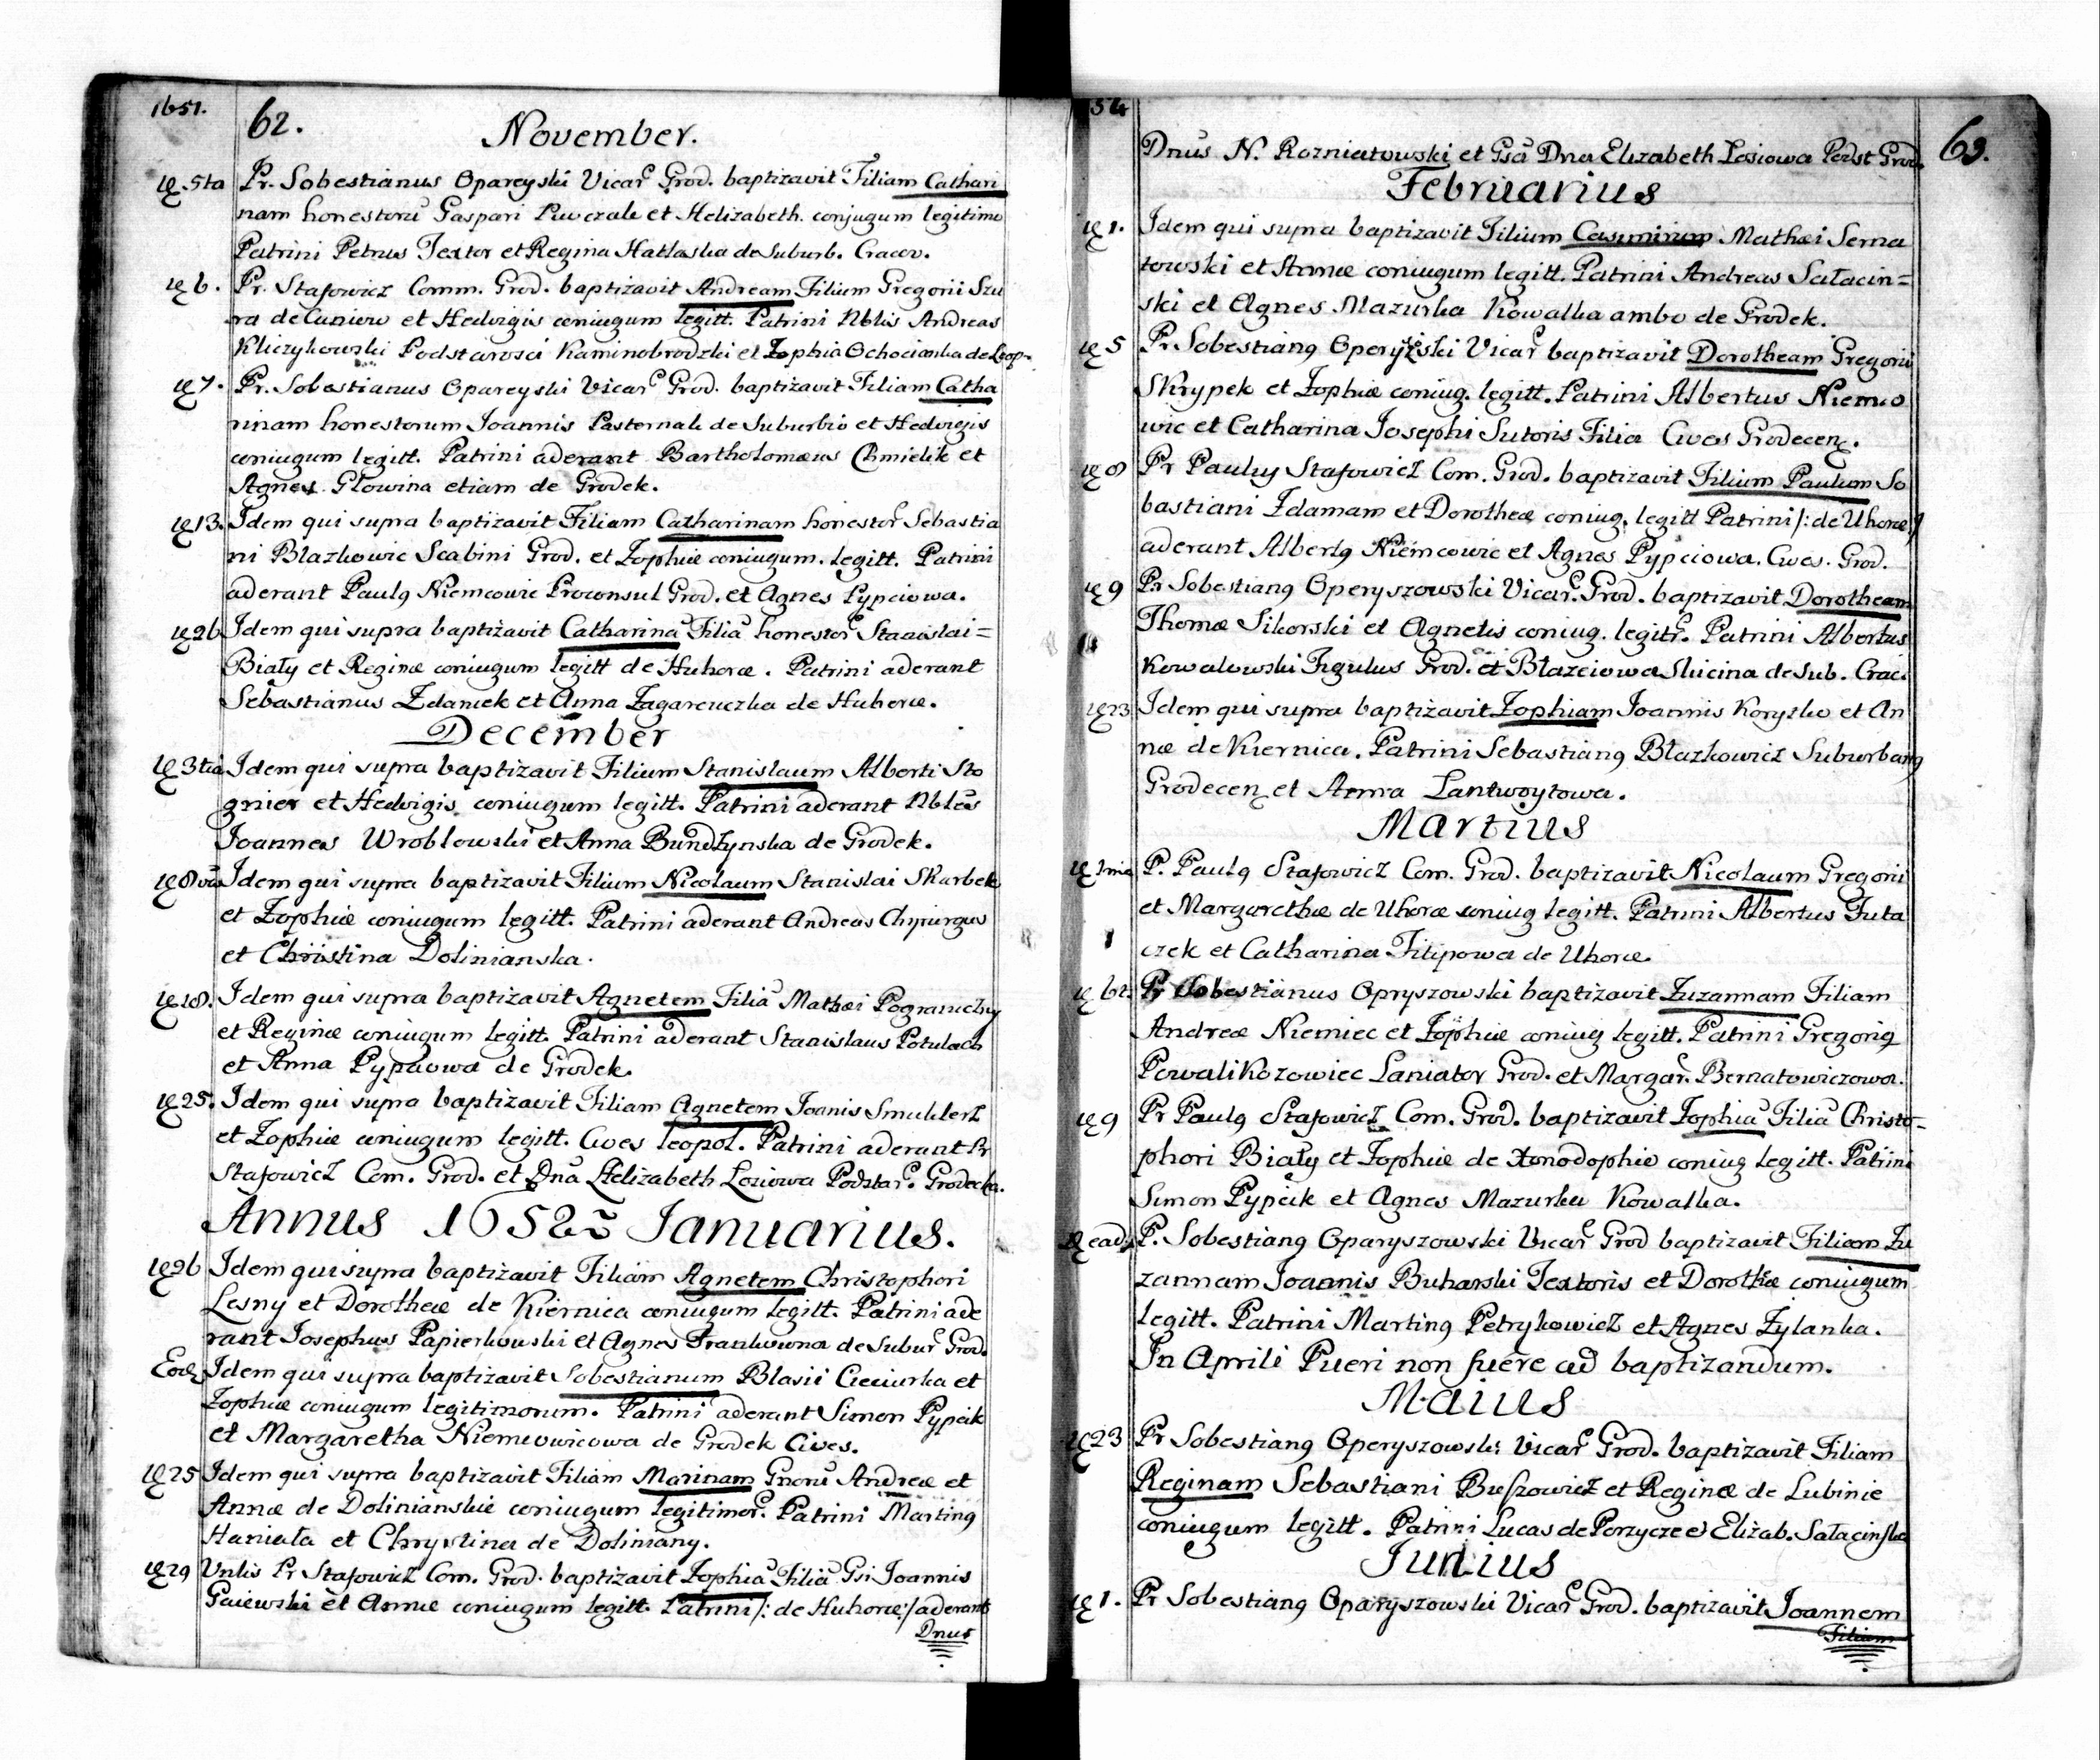 1651.
62.
November.
5ta Pr. Sobestianus Opareyski Vicar Grod. baptizavit Filiam Cathari
nam honestorū Gaspari Puwczale et Helizabeth. conjugum legitimo
Patrini Petrus Textor et Regina Hatlaska de Suburb. Cracov.
6. Pr. Stasowicz Comm. Grod. baptizavit Andream Filium Gregorii Szu
ra de Cuniow et Hedvigis coniugum legitt. Patrini Nblis Andreas
Kliczykowski Podstarosci Kaminobrodzki et Zophia Ochocianka de Leop.
7. Pr. Sobestianus Opareyski Vicar Grod. baptizavit Filiam Catha
rinam honestorum Joannis Pasternak de Suburbio et Hedvigis
coniugum legitt. Patrini aderant Bartholomæus Chmielik et
Agnes Głowina etiam de Grodek.
13. Idem qui supra baptizavit Filiam Catharinam honestor Sebastia
ni Blazkowic Scabini Grod. et Zophiæ coniugum. legitt. Patrini
aderant Paulq Niemcowic Proconsul Grod. et Agnes Pypciowa.
26 Idem qui supra baptizavit Catharinā Filiā honestor Stanislai=
Biały et Reginæ coniugum legitt de Huhorce. Patrini aderant
Sebastianus Zdanek et Anna Zagareuczka de Huhorce.
December
3tia Idem qui supra baptizavit Filium Stanislaum Alberti Sto
gnier et Hedvigis coniugum legitt. Patrini aderant Nbles
Joannes Wroblowski et Anna Bundzynska de Grodek.
8va Idem qui supra baptizavit Filium Nicolaum Stanislai Skarbek
et Zophiæ coniugum legitt. Patrini aderant Andreas Chyrurgus
et Christina Dolinianska.
18. Idem qui supra baptizavit Agnetem Filiā Mathæi Pograniczny
et Reginæ coniugum legitt. Patrini aderant Stanislaus Potulach
et Anna Pypciowa de Grodek.
25. Idem qui supra baptizavit Filiam Agnetem Joanis Smuklerz
et Zophiæ coniugum legitt. Cives leopol. Patrini aderant Pr
Stasowicz Com. Grod. et Dnā Helizabeth Losiowa Podstar. Grodecka.
Annus 1652 Januarius.
26 Idem qui supra baptizavit Filiam Agnetem Christophori
Lesny et Dorotheæ de Kiernica coniugum legitt. Patrini ade
rant Josephus Papierkowski et Agnes Frankowna de Subur Grod.
Eod Idem qui supra baptizavit Sobestianum Blasii Cieciurka et
Zophiæ coniugum legitimorum. Patrini aderant Simon Pypcik
et Margaretha Niemcowicowa de Grodek Cives.
25 Idem qui supra baptizavit Filiam Marinam Gnorū Andreæ et
Annæ de Dolinianskie coniugum legitimor. Patrini Martinq
Haniata et Chrystina de Doliniany.
29 Vnlis Pr Stasowicz Com. Grod. baptizavit Zophiā Filiā Gsi Joannis
Gaiewski et Annæ coniugum legitt. Patrini /: de Huhorce :/ aderant
Dnus
54
63.
Dnus N. Rozniatowski et Gsa Dna Elizabeth Losiowa Podst Grod.
Februarius
1. Idem qui supra baptizavit Filium Casimirum Mathæi Serna
towski et Annæ coniugum legitt. Patrini Andreas Sałacin=
ski et Agnes Mazurka Kowalka ambo de Grodek.
5 Pr Sobestianq Operyski Vicar baptizavit Dorotheam Gregorii
Skrypek et Zophiæ coniug. legitt. Patrini Albertus Niemco
wic et Catharina Josephi Sutoris Filia Cives Grodecen.
8 Pr Paulq Stasowicz Com. Grod. baptizavit Filium Paulum So
bastiani Zdamam et Dorotheæ coniug. legitt Patrini /: de Uhorce /
aderant Albertq Niemcowic et Agnes Pypciowa. Cives. Grod.
9 Pr Sobestianq Operyszowski Vicar. Grod. baptizavit Dorotheam
Thomæ Sikorski et Agnetis coniug. legitt. Patrini Albertus
Kowalowski Figulus Grod. et Błazeiowa Slucina de Sub. Crac.
23 Idem qui supra baptizavit Zophiam Joannis Korysko et An
næ de Kiernica. Patrini Sebastianq Błazkowicz Suburbanq
Grodecen et Anna Lantwoytowa.
Martius
1ma P. Paulq Stasowicz Com. Grod. baptizavit Nicolaum Gregorii
et Margarethæ de Uhorce coniug legitt. Patrini Albertus Futa
czek et Catharina Filipowa de Uhorce.
6t. Pr Sobestianus Opryszowski baptizavit Zuzannam Filiam
Andreæ Niemiec et Zophiæ coniug legitt. Patrini Gregoriq
Powalikozowiec Laniator Grod. et Margar. Bernatowiczowa.
9 Pr Paulq Stasowicz Com. Grod. baptizavit Zophiā Filiā Christo-
phori Biały et Zophiæ de Xonodophie coniug legitt. Patrini
Simon Pypcik et Agnes Mazurka Kowalka.
ead. P. Sobestianq Oparyszowski Vicar Grod baptizavit Filiam Zu
zannam Joannis Buharski Textoris et Dorothæ coniugum
legitt. Patrini Martinq Petrykowicz et Agnes Zylanka.
In Aprili Pueri non fuere ad baptizandum.
Maius
23 Pr Sobestianq Operyszowski Vicar Grod. baptizavit Filiam
Reginam Sebastiani Buszowicz et Reginæ de Lubinie
coniugum legitt. Patrini Lucas de Porzycze et Elizab. Sałacinska
Junius
1. Pr Sobestianq Oparyszowski Vicar Grod. baptizavit Joannem
Filium